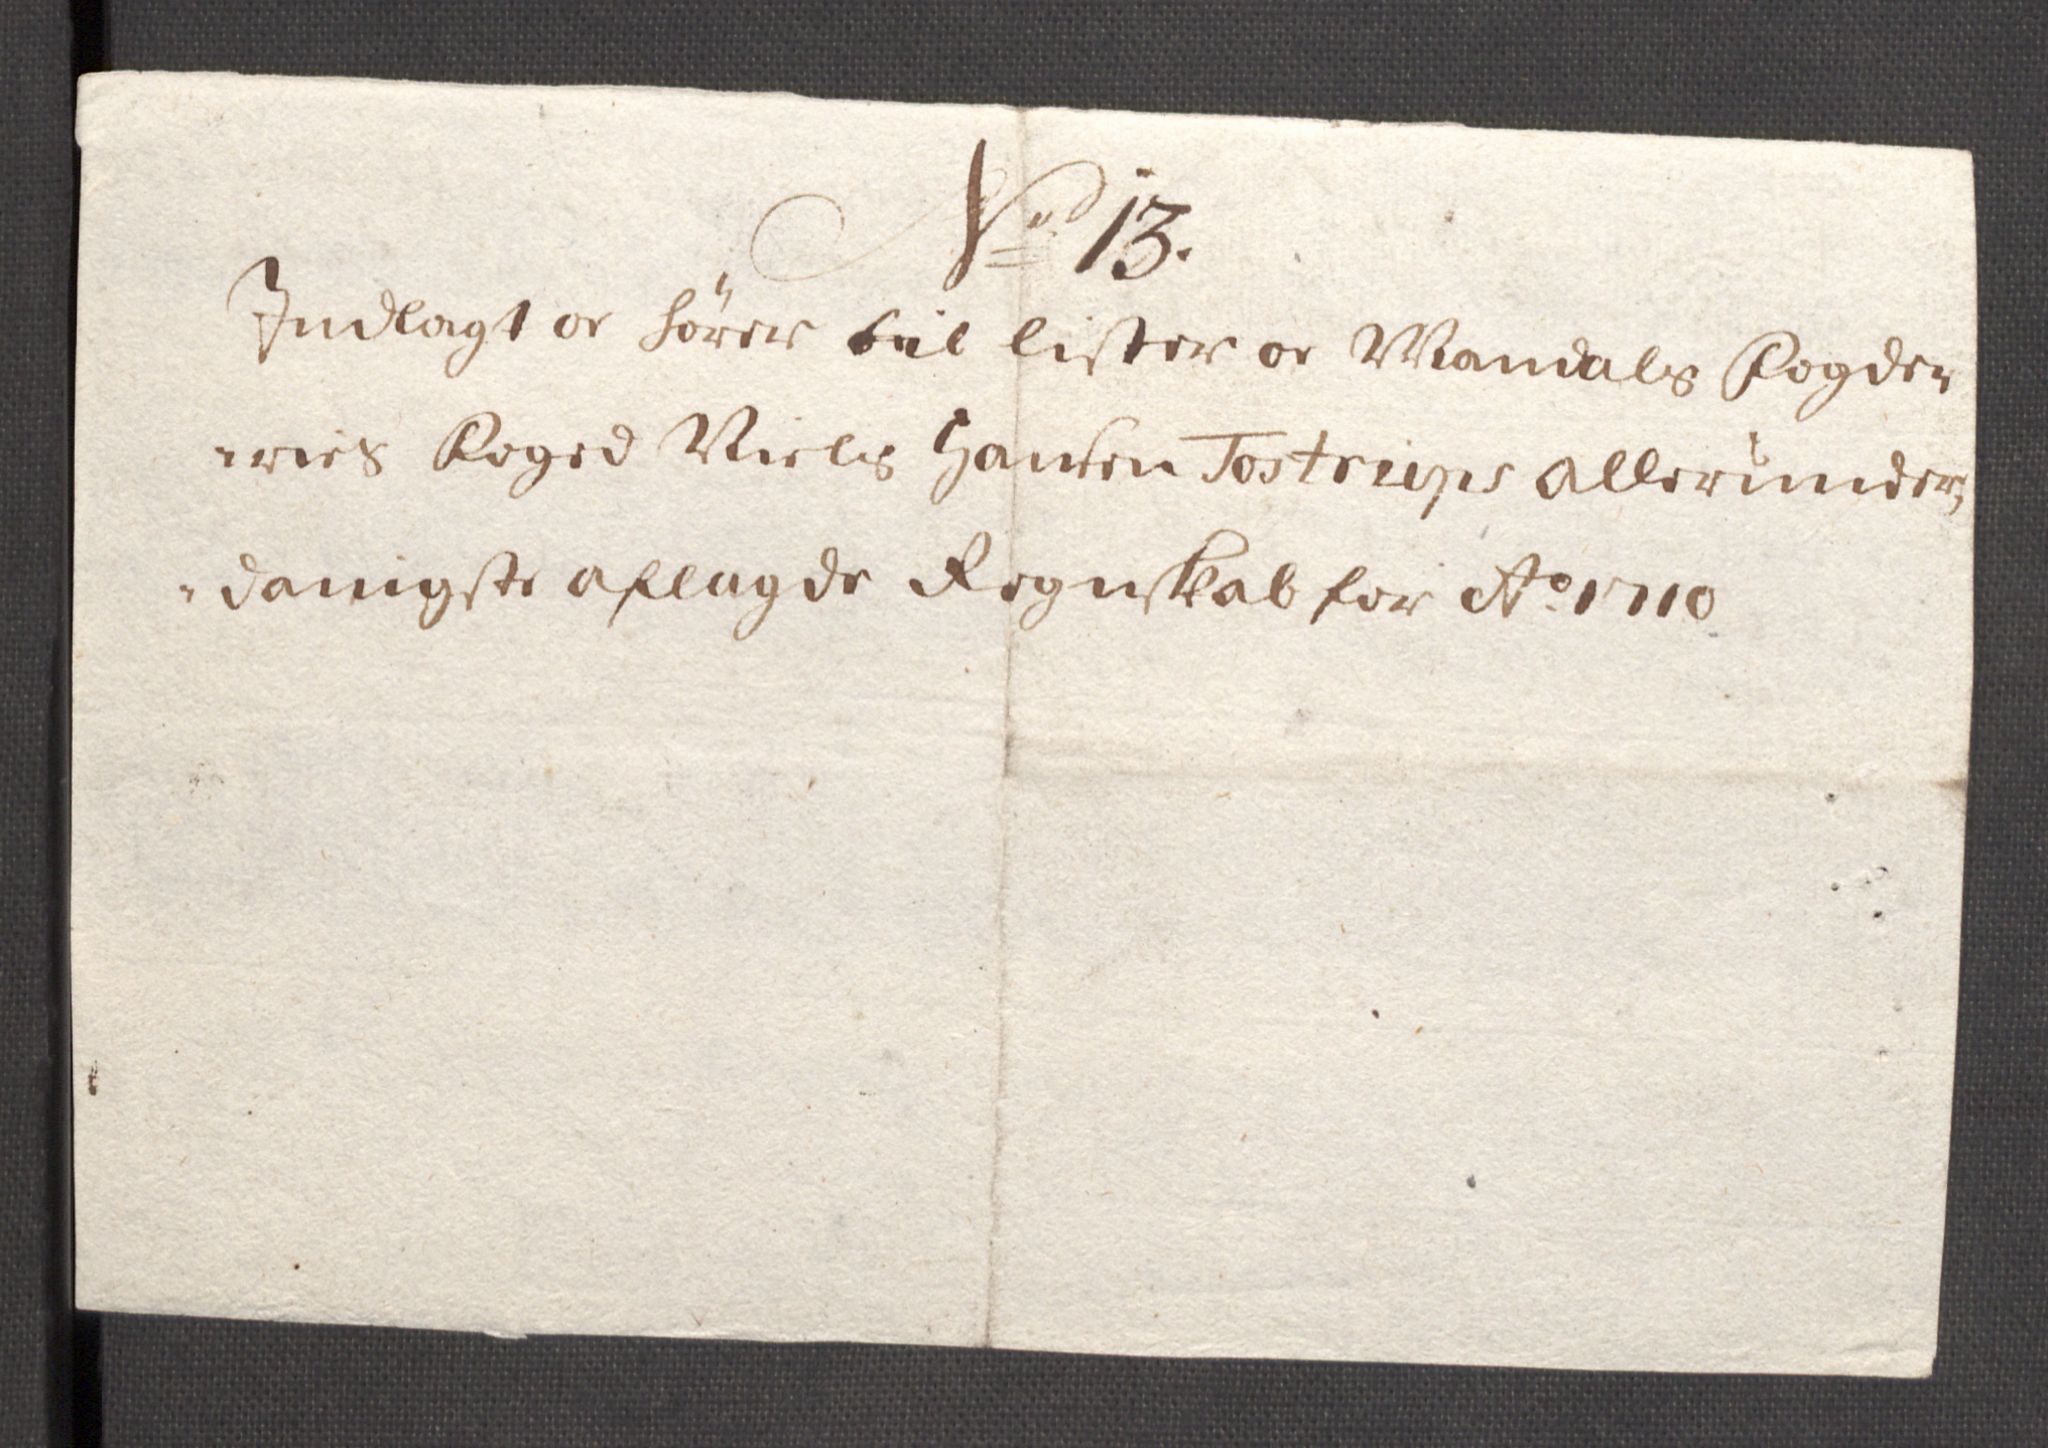 No 13.
Indlagt oc hörer till Lister oc Mandals Fogde-
-ries Foged Niels Hansen Tostrups allerunder-
-danigste aflagde Regnskab for Ao. 1710